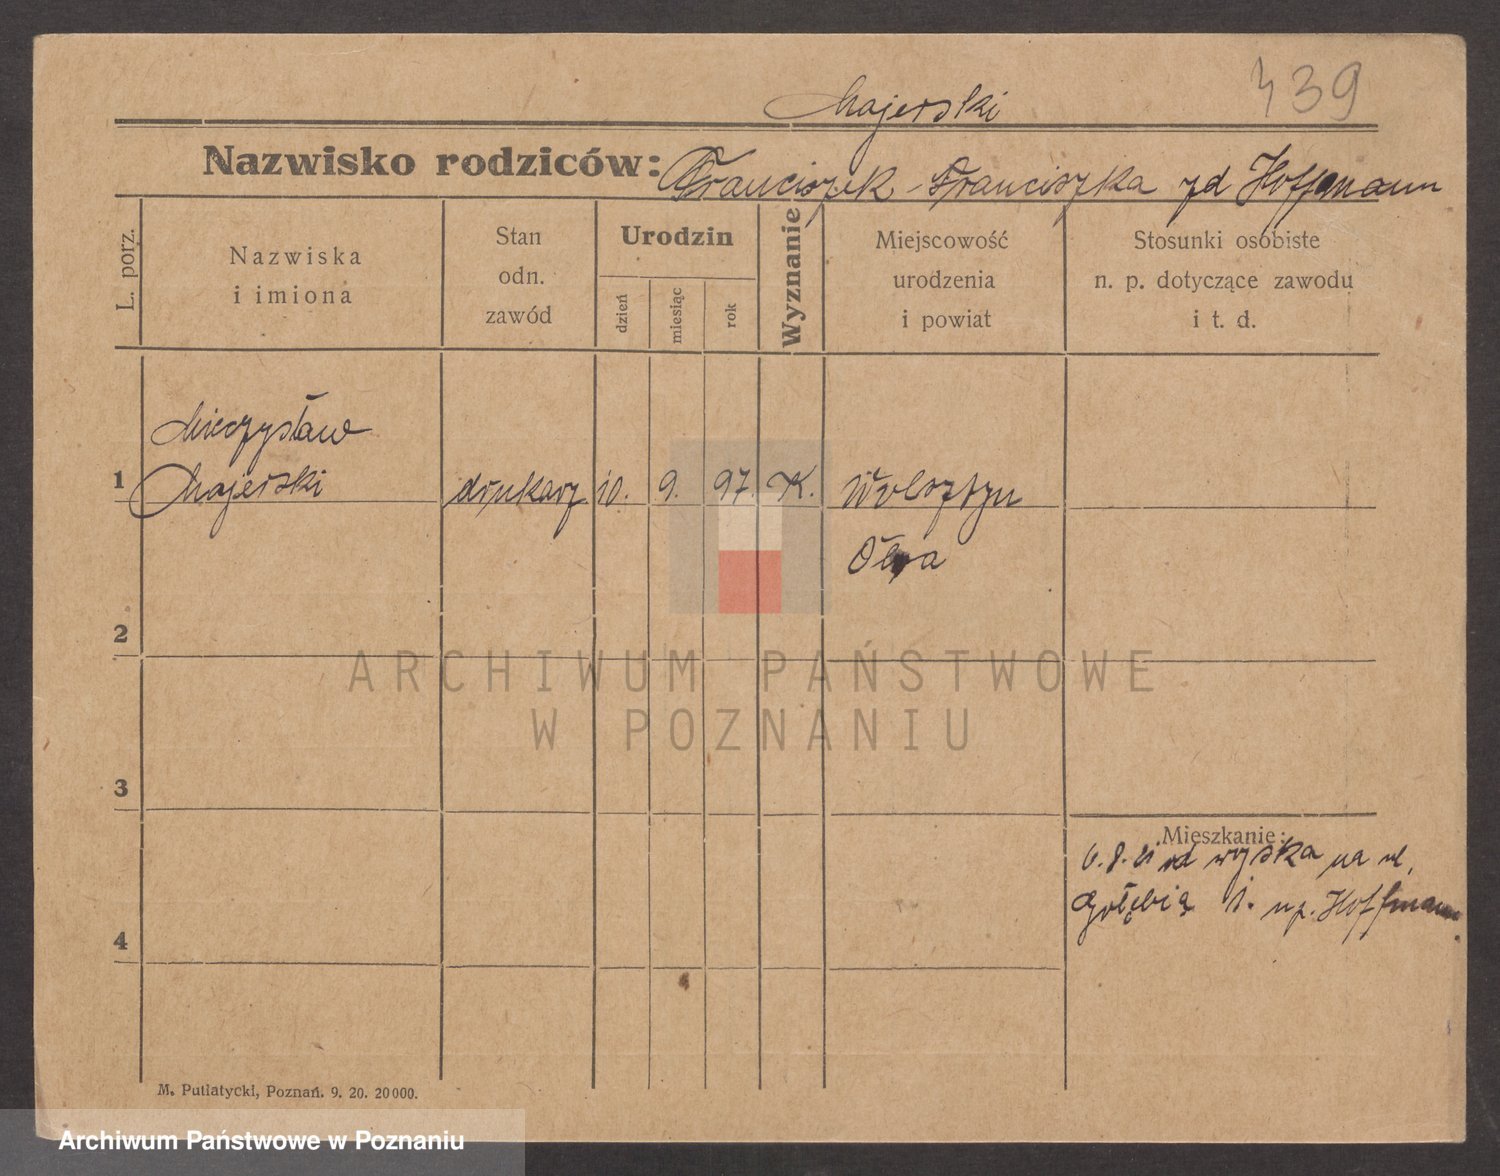 439
Majerski
Nazwisko rodziców: Franciszek - Franciszka zd Hoffmann
L. porz.
Nazwiska
i imiona
Stan
odn.
zawód
Urodzin
dzień
miesiąc
rok
Wyznanie
Miejscowość
urodzenia
i powiat
Stosunki osobiste
n. p. dotyczące zawodu
i t. d.
Mieczysław
1 Majerski drukarz 10. 9. 97. K. Wolsztyn
2
3
4
Mieszkanie:
6.8. od wojska na ul.
Gołębią 1. np. Hoffmann.
M. Putiatycki, Poznań. 9. 20. 20000.
ARCHIWUM PAŃSTWOWE
W POZNANIU
Archiwum Państwowe w Poznaniu